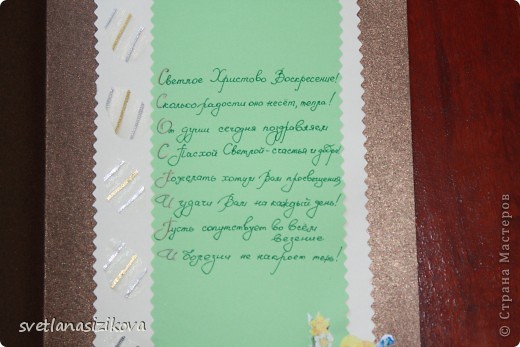 Светлое Христово Воскресение!
Сколько радости оно несёт, тепла!
От души сегодня поздравляем
С Пасхой Светлой - счастья и добра!
Пожелать хотим Вам просвещения,
И удачи Вам на каждый день!
Пусть сопутствует во всём
везение
И болезни не накроет тень!
svetlanasizikova
© Страна Мастеров